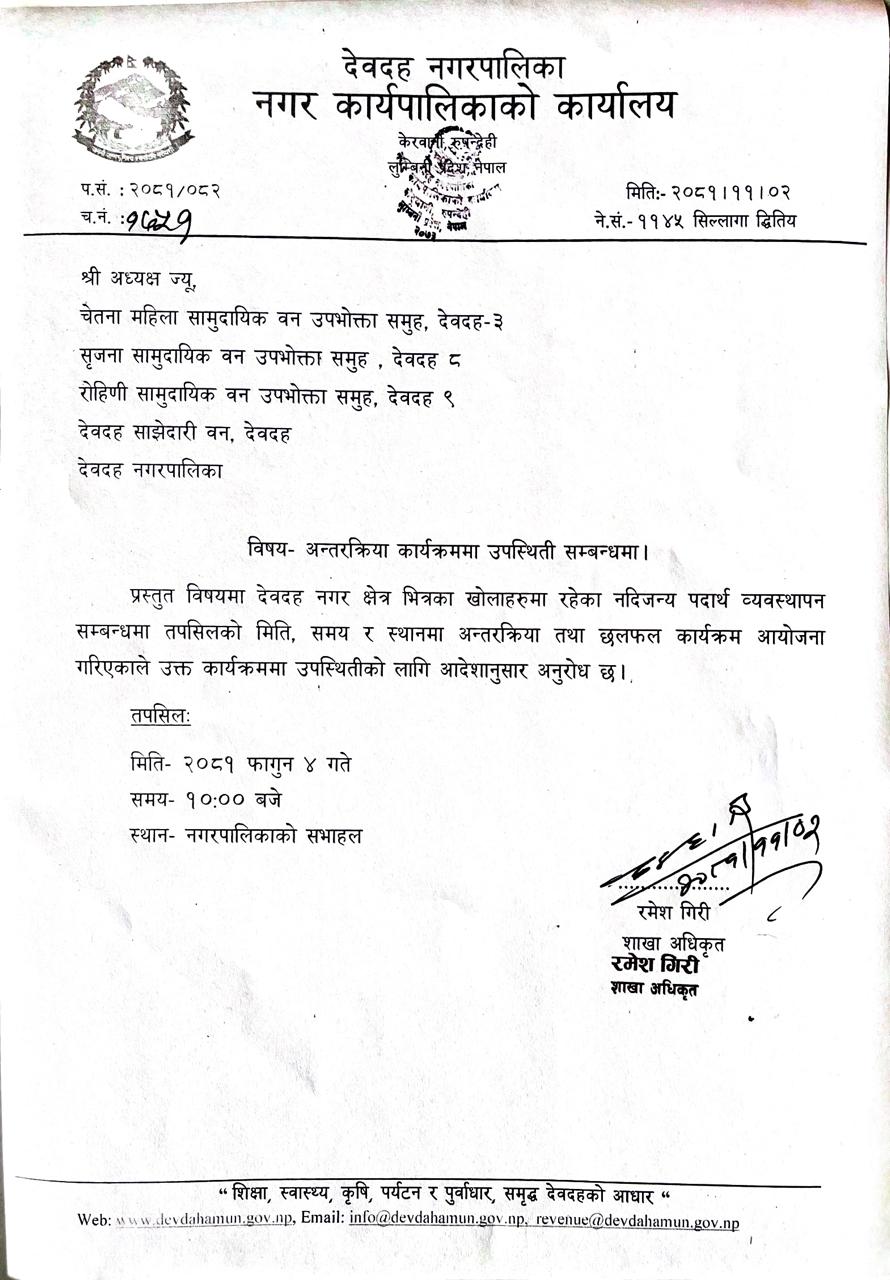 देवदह नगरपालिका
नगर कार्यपालिकाको कार्यालय
केरवानी, रुपन्देही
लुम्बिनी प्रदेश, नेपाल
प.सं. : २०८१/०८२
मितिः- २०८१।११।०२
च.नं. :
ने.सं.- ११४५ सिल्लागा द्वितिय
श्री अध्यक्ष ज्यू,
चेतना महिला सामुदायिक वन उपभोक्ता समुह, देवदह-३
सृजना सामुदायिक वन उपभोक्ता समुह , देवदह ८
रोहिणी सामुदायिक वन उपभोक्ता समुह, देवदह ९
देवदह साझेदारी वन, देवदह
देवदह नगरपालिका
विषय- अन्तरक्रिया कार्यक्रममा उपस्थिती सम्बन्धमा।
प्रस्तुत विषयमा देवदह नगर क्षेत्र भित्रका खोलाहरुमा रहेका नदिजन्य पदार्थ व्यवस्थापन
सम्बन्धमा तपसिलको मिति, समय र स्थानमा अन्तरक्रिया तथा छलफल कार्यक्रम आयोजना
गरिएकाले उक्त कार्यक्रममा उपस्थितीको लागि आदेशानुसार अनुरोध छ।
तपसिलः
मिति- २०८१ फागुन ४ गते
समय- १०:०० बजे
स्थान- नगरपालिकाको सभाहल
२०८१/११/०२
रमेश गिरी
शाखा अधिकृत
रमेश गिरी
शाखा अधिकृत
“ शिक्षा, स्वास्थ्य, कृषि, पर्यटन र पुर्वाधार, समृद्ध देवदहको आधार “
Web: www.devdahamun.gov.np, Email: info@devdahamun.gov.np, revenue@devdahamun.gov.np